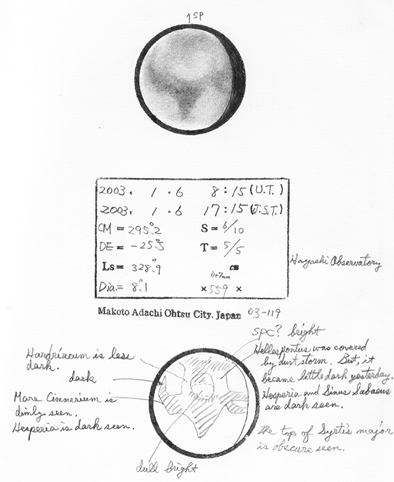 ↑SP
2003. 1 . 6 8:15 (U.T.)
2003. 1 . 6 17:15 (J.S.T.)
CM = 295.°2 S = 6/10
DE = -25.°5 T = 5/5
Ls = 328.°9 cm
Dia. = 8."1 × 559 ×
Hayashi Observatory
Makoto Adachi Ohtsu City. Japan 03-119
spc? bright
Hadriacum is less
dark.
dark
Mare Cimmerium is
dimly seen.
Hesperia is dark seen.
Hellespontus was covered
by dust storm. But, it
became little dark yesterday.
Hesperia and Sinus Sabaeus
are dark seen.
the top of Syrtis major
is obscure seen.
dull bright